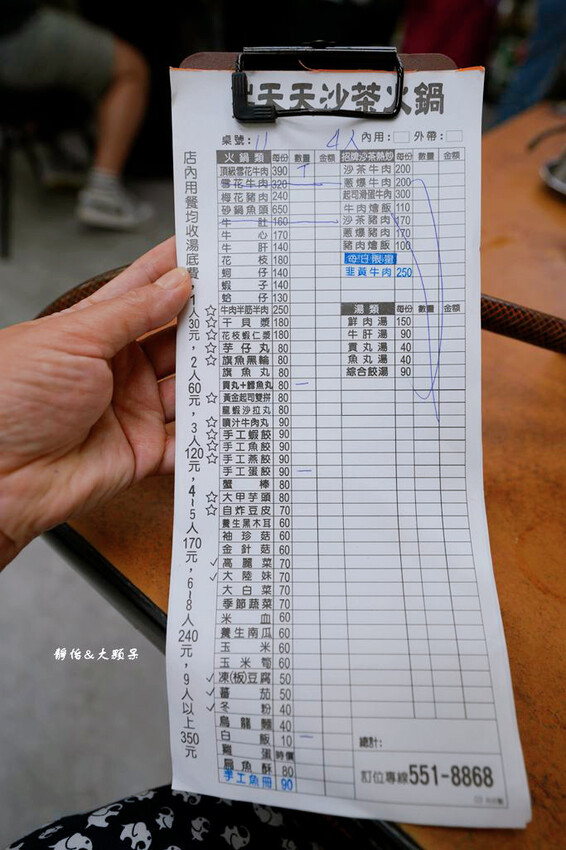 天天沙茶火鍋
桌號: 11 4人 內用: 外帶:
火鍋類 每份 數量 金額 招牌沙茶熱炒 每份 數量 金額
頂級雪花牛肉 390 沙茶牛肉 200
雪花牛肉 320 蔥爆牛肉 200
梅花豬肉 240 起司滑蛋牛肉 300
砂鍋魚頭 650 牛肉燴飯 110
牛肚 160 沙茶豬肉 170
牛心 170 蔥爆豬肉 170
牛肝 140 豬肉燴飯 100
花枝 180 每日限量
蚵仔 140 韭黃牛肉 250
蝦子 140
蛤仔 130
☆ 牛肉半筋半肉 250 湯類 每份 數量 金額
☆ 干貝漿 180 鮮肉湯 150
☆ 花枝蝦仁漿 180 牛肝湯 90
☆ 芋仔丸 80 貢丸湯 40
☆ 旗魚黑輪 80 魚丸湯 40
旗魚丸 80 綜合餃湯 90
貢丸+鱈魚丸 80 一
☆ 黃金起司雙拼 80
龍蝦沙拉丸 80
☆ 爆汁牛肉丸 80
☆ 手工蝦餃 90
☆ 手工魚餃 90
☆ 手工燕餃 90
手工蛋餃 90 一
蟹棒 80
☆ 大甲芋頭 80
☆ 自炸豆皮 70
養生黑木耳 60
袖珍菇 60
金針菇 60
✓ 高麗菜 70
✓ 大陸妹 70
大白菜 70
季節蔬菜 70
米血 60
養生南瓜 60
玉米 60
玉米筍 60
✓ 凍(板)豆腐 50
✓ 蕃茄 50
✓ 冬粉 40
烏龍麵 40
白飯 10 一
雞蛋 時價
扁魚酥 80
手工魚冊 90
總計:
訂位專線551-8868
店內用餐均收湯底費,1人30元,2人60元,3人120元,4~5人170元,6~8人240元,9人以上350元
靜怡&大顆呆